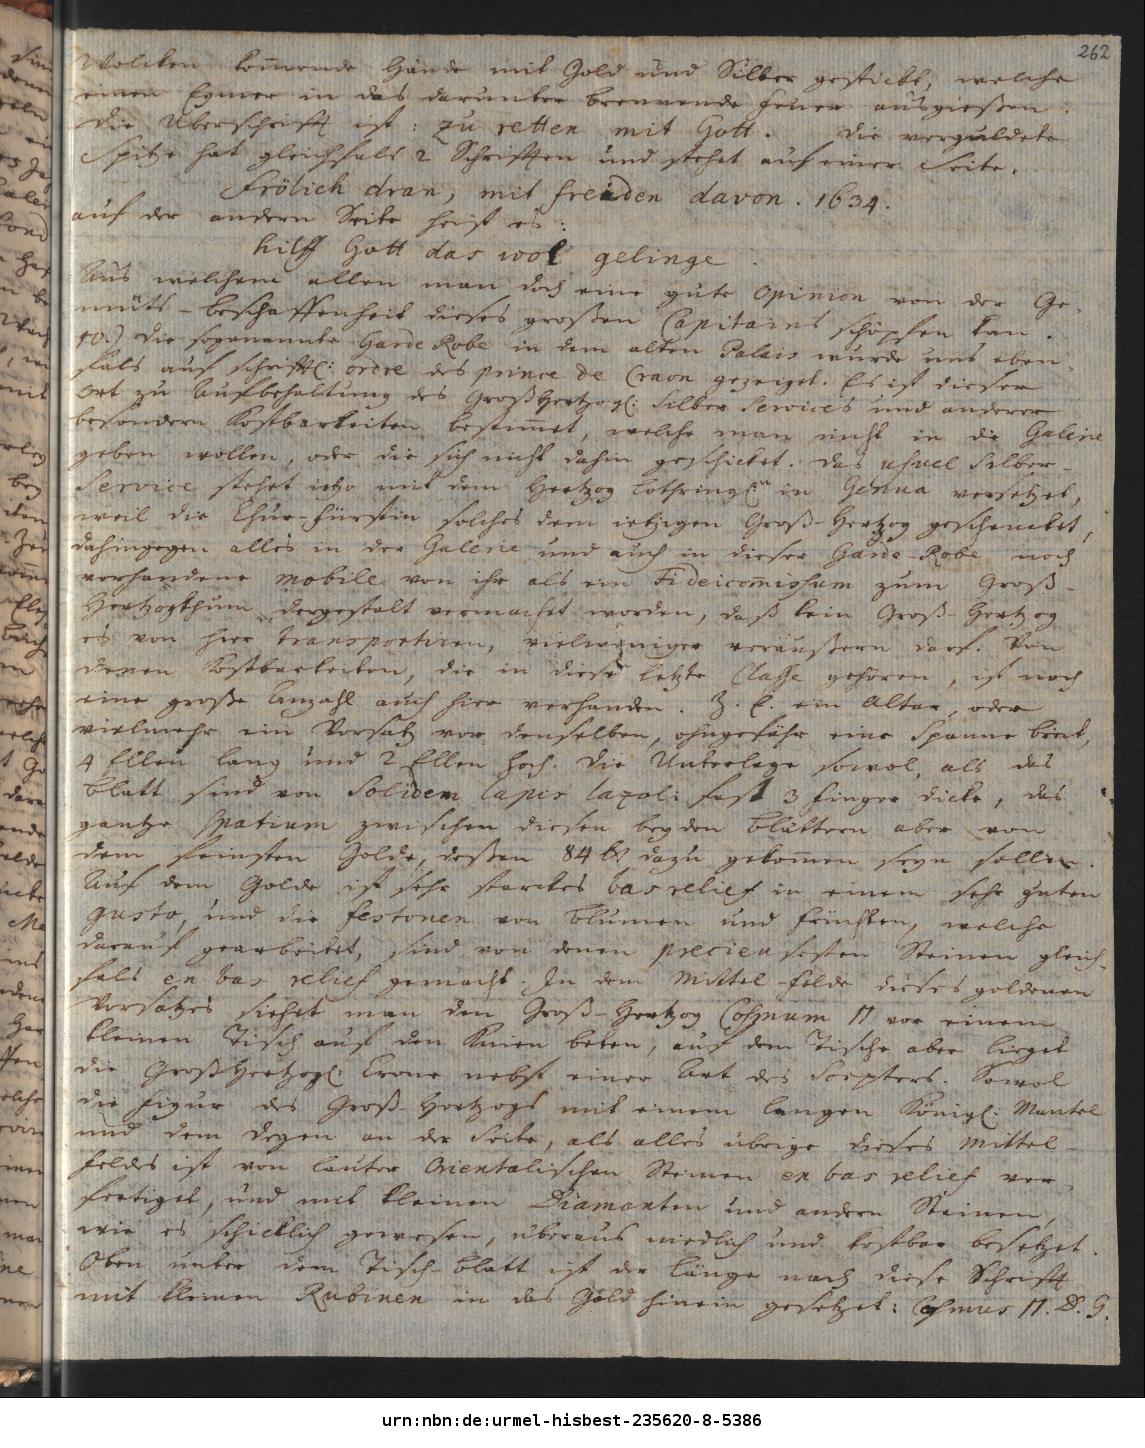 262
Wolcken kom̄ende Hände mit Gold und Silber gestickt, welche
einen Eymer in das darunter brennende Feuer ausgießen.
Die Uberschrifft ist: zu retten mit Gott. Die verguldete
Spitze hat gleichfals 2 Schrifften und stehet auf einer Seite.
Frölich dran, mit freüden davon. 1634.
auf der andern Seite heist es:
hilff Gott das wol gelinge.
Aus welchem allen man doch eine gute Opinion von der Ge-
müts-beschaffenheit dieses großen Capitains schöpfen kan.
10.) Die sogenannte GardeRobe in dem alten Palais wurde uns eben-
fals auf schrifftl: ordre des prince de Craon gezeiget. Es ist dieser
Ort zu Aufbehaltung des GroßHertzogl: Silber Services und anderer
besondern Kostbarkeiten bestim̄et, welche man nicht in die Galerie
geben wollen, oder die sich nicht dahin geschicket. Das usuel Silber-
Service stehet itzo mit dem Hertzog Lothringl:n in Genua versetzet,
weil die Chur-Fürstin solches dem ietzigen Groß-Hertzog geschencket,
dahingegen alles in der Galerie und auch in dieser Garde-Robe noch
vorhandene mobile von ihr als ein Fideicom̄issum zum Groß-
Hertzogthum dergestalt vermachet worden, daß kein Groß-Hertzog
es von hier transportiren, vielweniger veräußern darf. Von
denen Kostbarkeiten, die in diese letzte Classe gehören, ist noch
eine große Anzahl auch hier vorhanden. Z. E. ein Altar, oder
vielmehr ein Vorsatz vor denselben, ohngefähr eine Spanne breit,
4 Ellen lang und 2 Ellen hoch. Die Unterlage sowol, als das
Blatt sind von Solidem lapis lazoli fast 3 Finger dicke, das
gantze spatium zwischen diesen beyden Blättern aber von
dem feinsten Golde, deßen 84 lb dazu gekom̄en seyn sollen.
Auf dem Golde ist sehr starckes bas relief in einem sehr guten
gusto, und die festonen von Blumen und Früchten, welche
darauf gearbeitet, sind von denen precieusesten Steinen gleich-
fals en bas relief gemacht. In dem Mittel-Felde dieses goldenen
Vorsatzes siehet man den Groß-Hertzog Cosmum II vor einem
kleinen Tisch auf den Knien beten, auf dem Tische aber lieget
die GroßHertzogl: Crone nebst einer Art des Scepters. Sowol
die Figur des Groß-Hertzogs mit einem langen Königl: Mantel
und dem Degen an der Seite, als alles übrige dieses Mittel-
Feldes ist von lauter Orientalischen Steinen en bas relief ver-
fertiget, und mit kleinen Diamanten und andern Steinen,
wie es schicklich gewesen, überaus niedlich und kostbar besetzet.
Oben unter dem Tisch-Blatt ist der Länge nach diese Schrifft
mit kleinen Rubinen in das Gold hinein gesetzet: Cosmus II. D. G.
urn:nbn:de:urmel-hisbest-235620-8-5386